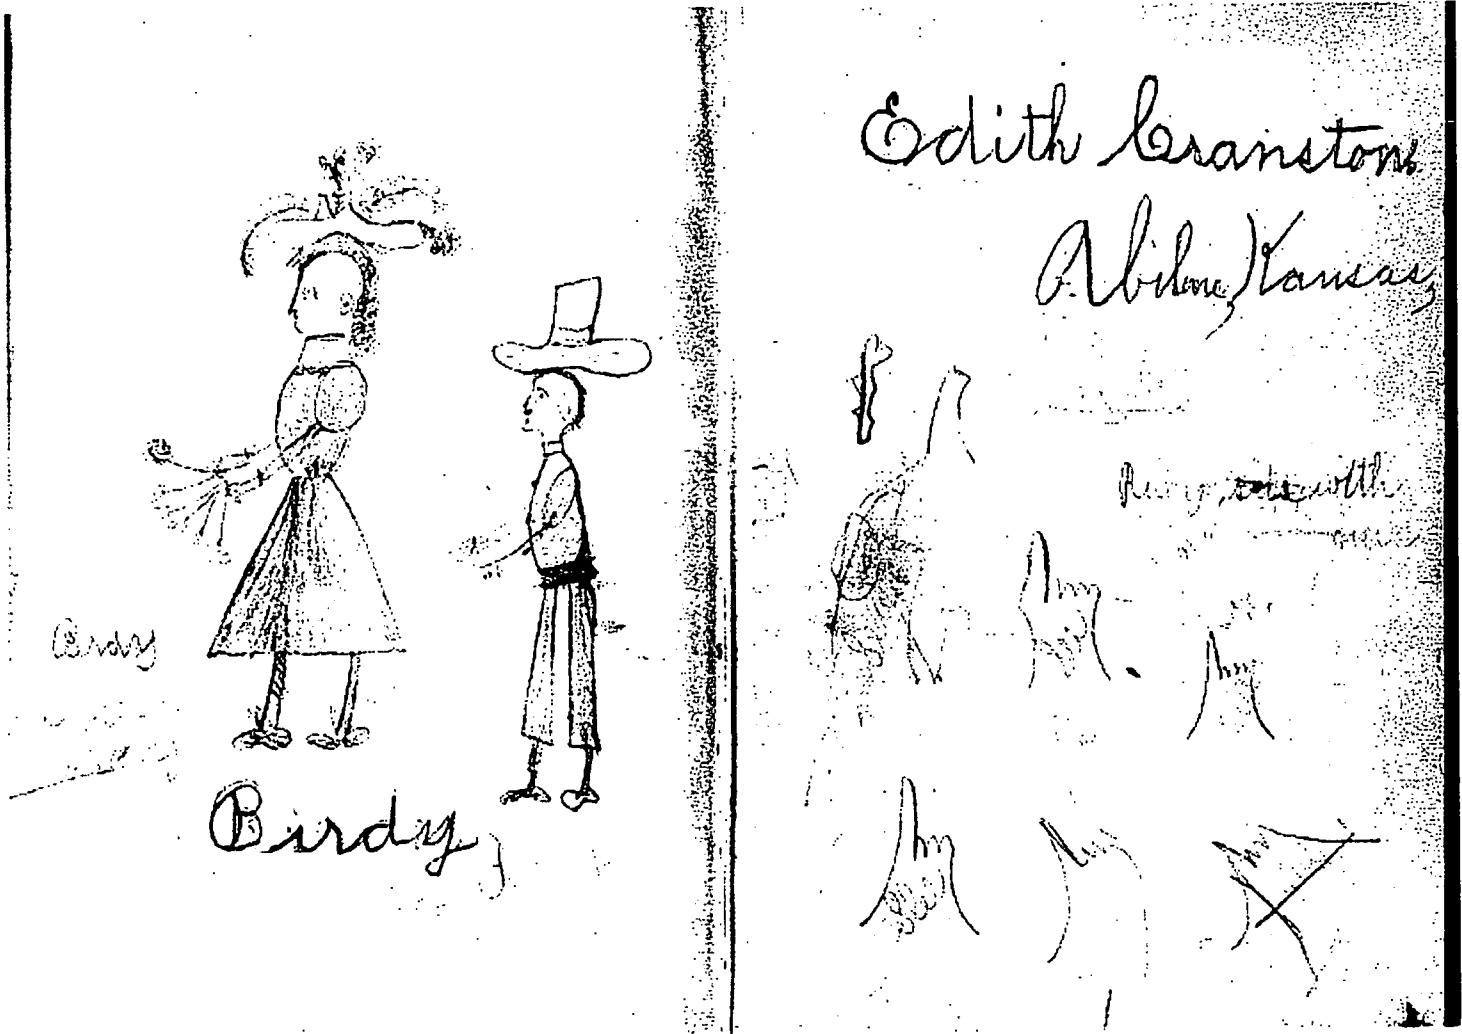 Birdy
Birdy,
Edith Cranston
Abilene, Kansas,
with